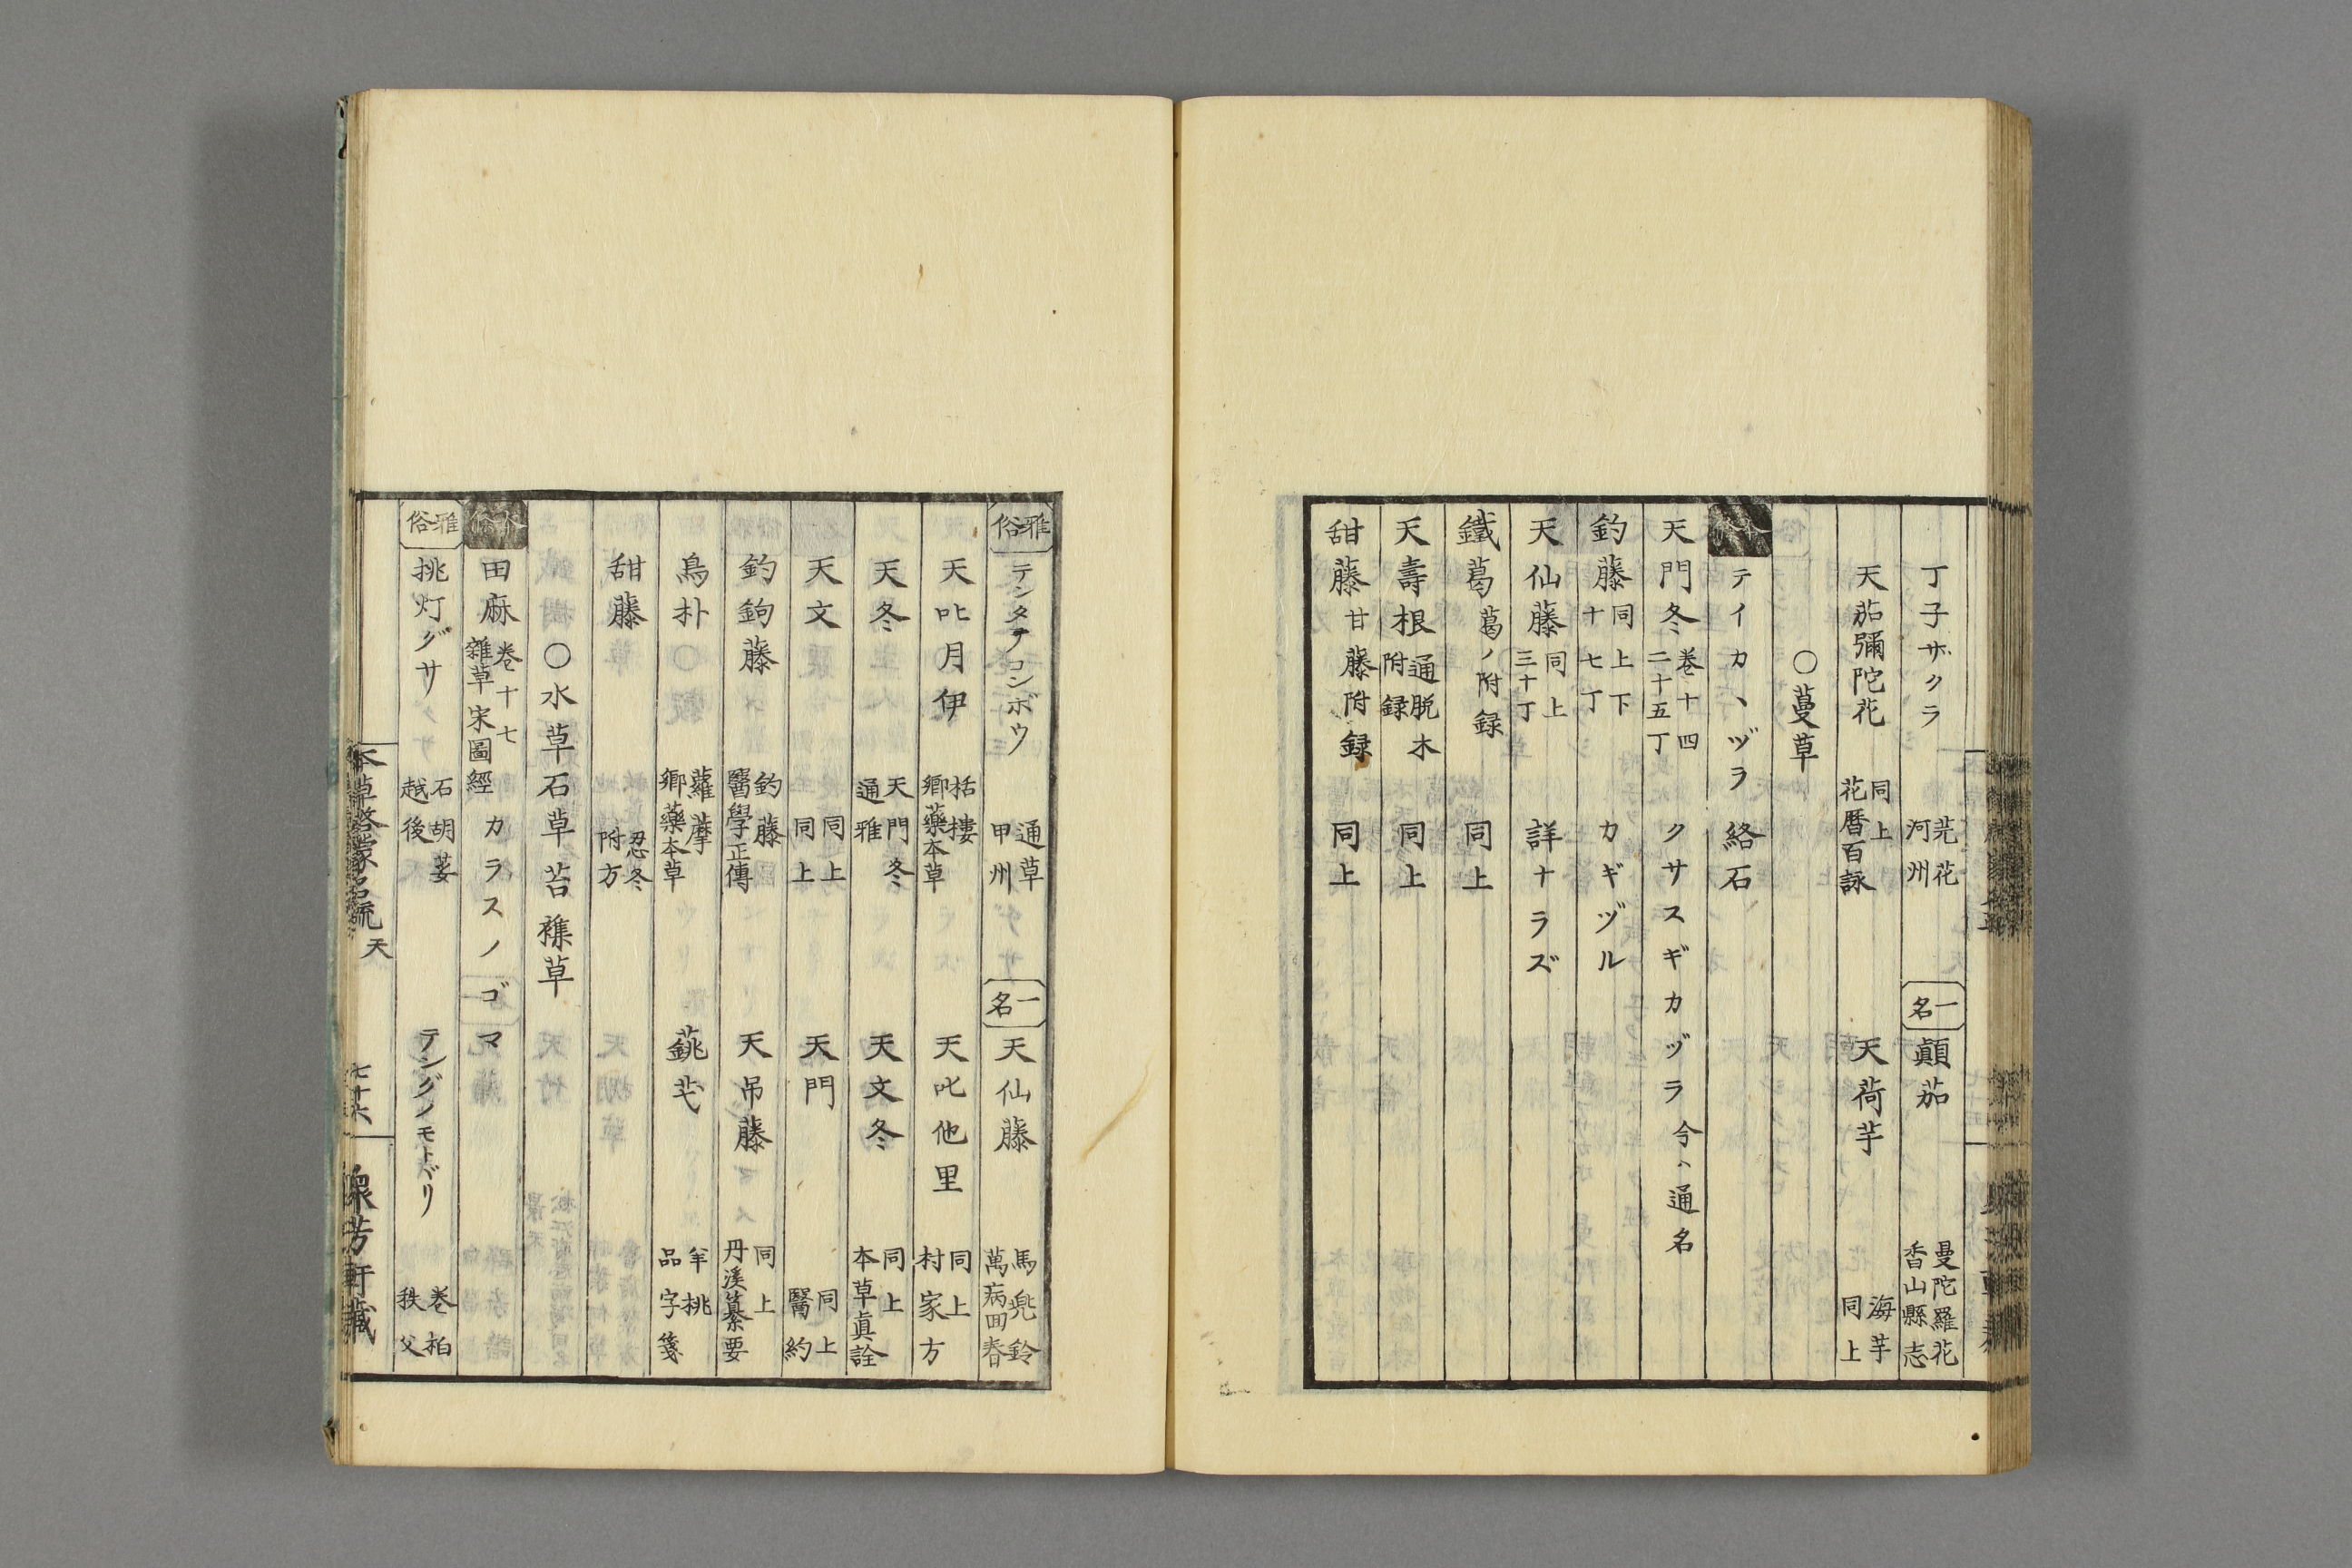 丁子サクラ 芫花 河州 一名 顛茄 曼陀羅花 香山縣志
天茄彌陀花 同上 花暦百詠 天荷芋 海芋 同上
○蔓草
テイカヽヅラ 絡石
天門冬 巻十四 二十五丁 クサスギカヅラ 今ハ通名
釣藤 同上下 十七丁 カギヅル
天仙藤 同上 三十丁 詳ナラズ
鐵葛 葛ノ附録 同上
天壽根 通脱木 附録 同上
甜藤 甘藤附録 同上
雅俗 テンタテコンボウ 通草 甲州 一名 天仙藤 馬兠鈴 萬病回春
天叱月伊 括樓 郷藥本草 天叱他里 同上 村家方
天冬 天門冬 通雅 天文冬 同上 本草眞詮
天文 同上 同上 天門 同上 醫約
釣鉤藤 釣藤 醫學正傳 天吊藤 同上 丹溪纂要
鳥朴 蘿藦 郷藥本草 銚芅 羊桃 品字箋
甜藤 忍冬 附方
○水草石草苔襍草
田麻 巻十七 雜草 宋圖經 カラスノゴマ
雅俗 挑灯グサ 石胡荽 越後 テングノモトバリ 巻柏 秩父
本草啓蒙名疏 天 七十六 衆芳軒藏